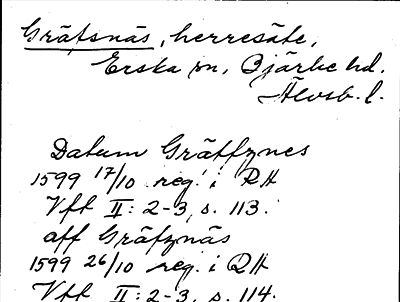 Gräfsnäs, herresäte,
Erska sn, Bjärke hd.
Älvsb. l.
Datum Gräffznes
1599 17/10 reg. i RH
Vft II: 2-3, s. 113.
aff Gräfznäs
1599 26/10 reg. i RH
Vft II: 2-3, s. 114.